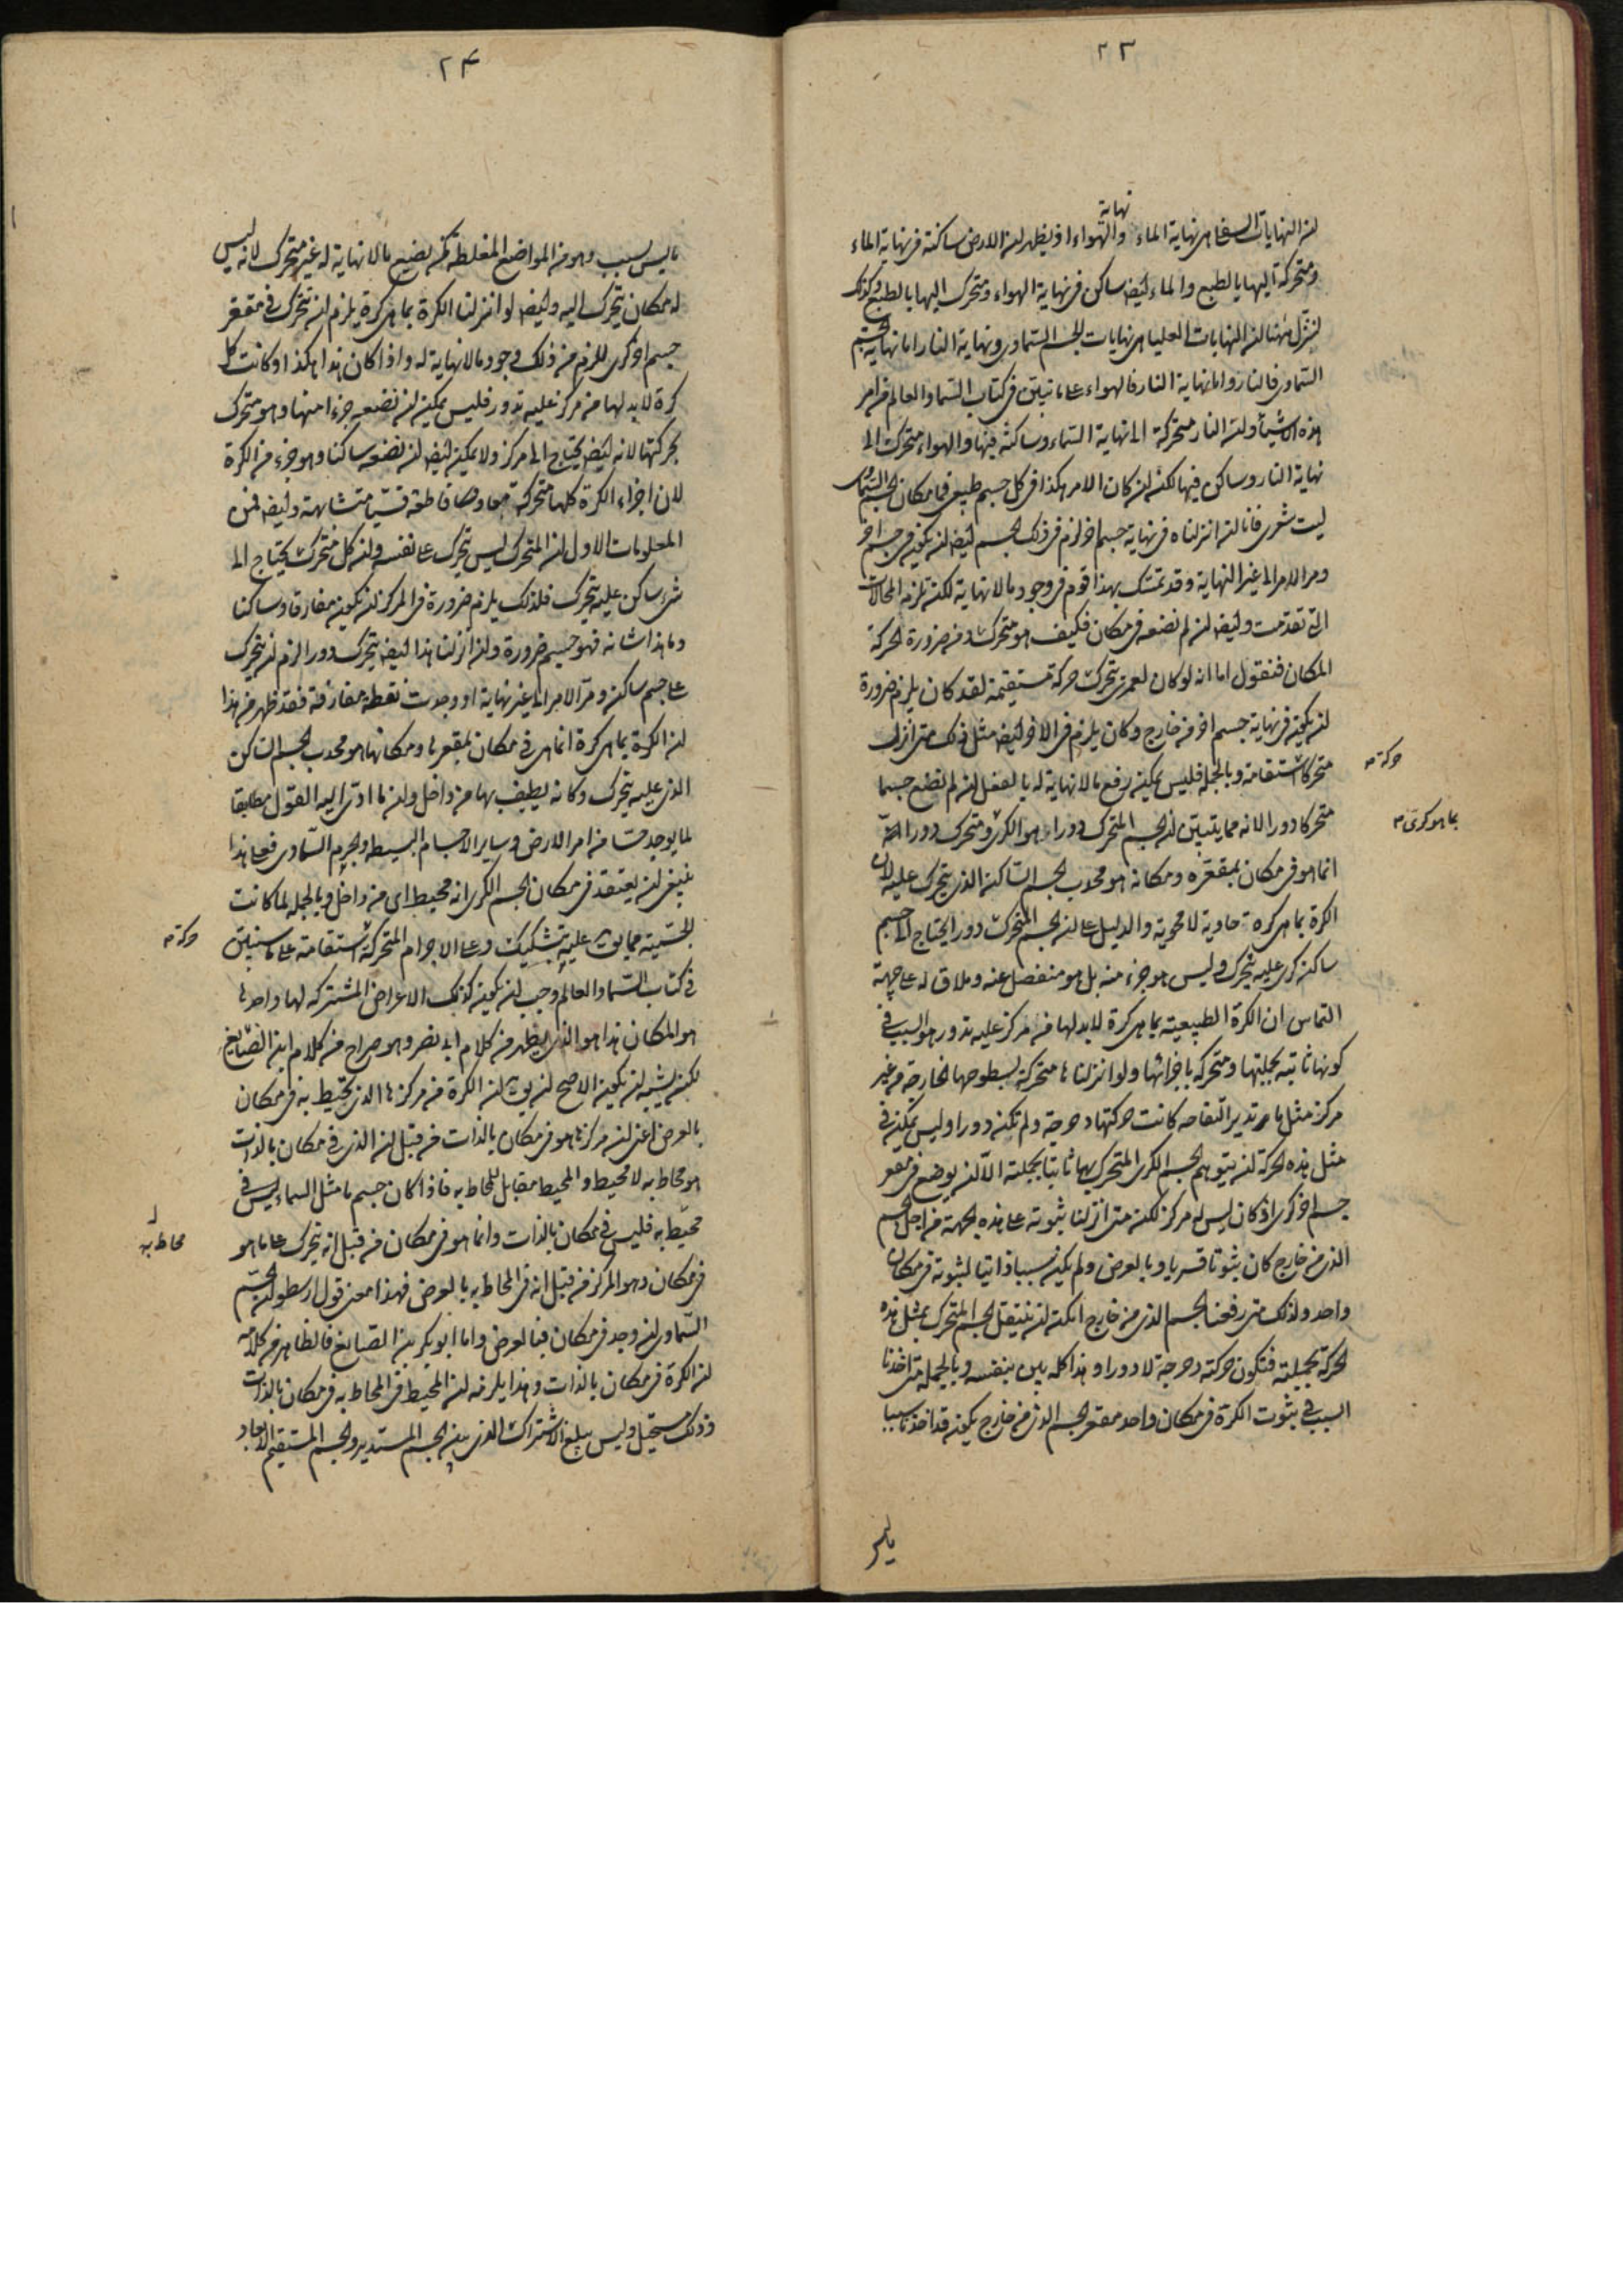 ٢٣
نهاية
لان النهايات السفلى هى نهاية الماء والهواء اذ يظهر ان الارض ساكنة فى نهاية الماء
ومتحركة اليها بالطبع والماء ايضا ساكن فى نهاية الهواء ومتحرك اليها بالطبع وكذلك
لننزل هنا ان النهايات العليا هى نهايات الجسم السماوى ونهاية النار اما نهاية الجسم
السماوى فالنار واما نهاية النار فالهواء على ما تبين فى كتاب السماء والعالم من امر
هذه الاشياء وان النار متحركة الى نهاية السماء وساكنة فيها والهواء متحرك الى
نهاية النار وساكن فيها لكن ان كان الامر هكذا فى كل جسم طبيعى فما مكان الجسم السماوى
ليت شعرى فانا ان انزلناه فى نهاية جسم اخر لزم فى ذلك الجسم ايضا ان يكون فى جسم اخر
ومر الامر الى غير النهاية وقد تمسك بهذا قوم فى وجود ما لا نهاية لكنه تلزمه المحالات
التى تقدمت وايضا ان لم نضعه فى مكان فكيف هو متحرك ومن ضرورة الحركة
المكان فنقول اما انه لو كان لعمرى يتحرك حركة مستقيمة لقد كان يلزم ضرورة
ان يكون فى نهاية جسم اخر من خارج وكان يلزم فى الاخر ايضا مثل ذلك متى انزل
متحركا استقامة وبالجملة فليس يمكن رفع ما لا نهاية له بالفعل ان لم نضع جسما
متحركا دورا لانه مما يتبين ان الجسم المتحرك دورا هو الكرى ومتحرك دورا
انما هو فى مكان بمقعره ومكانه هو محدب الجسم الساكن الذى يتحرك عليه لان
الكرة بما هى كرة حاوية لا محوية والدليل على ان الجسم المتحرك دورا يحتاج الى جسم
ساكن كرى عليه يتحرك وليس هو جزء منه بل هو منفصل عنه وملاق له على جهة
التماس ان الكرة الطبيعية بما هى كرة لا بد لها من مركز عليه تدور هو السبب فى
كونها ثابتة بجملتها ومتحركة باجزائها ولو انزلناها متحركة بسطوحها الخارجة من غير
مركز مثل ما تدير التفاحة كانت حركتها دحرجة ولم تكن دورا وليس يمكن فى
مثل هذه الحركة ان يتوهم الجسم الكرى المتحرك بها ثابتا بجملته الا ان يوضع فى مقعر
جسم اخر كرى اذ كان ليس له مركز لكنه متى انزلنا ثبوته على هذه الجهة من اجل الجسم
الذى من خارج كان ثبوتا قسريا وبالعرض ولم يكن سببا ذاتيا لثبوته فى مكان
واحد ولذلك متى رفعنا الجسم الذى من خارج امكن ان ينتقل الجسم المتحرك بمثل هذه
الحركة بجملته فتكون حركته دحرجة لا دورا وهذا كله بين بنفسه وبالجملة متى اخذنا
السبب فى ثبوت الكرة فى مكان واحد مقعر الجسم الذى من خارج يكون قد اخذنا سببا
حركة
بما هو كرى
ما ليس
٢۴
ما ليس بسبب وهو من المواضع المغلطة كمن يضع ما لا نهاية له غير متحرك لانه ليس
له مكان يتحرك اليه وايضا لو انزلنا الكرة بما هى كرة يلزم ان تتحرك فى مقعر
جسم اخر كرى للزم من ذلك وجود ما لا نهاية له واذا كان هذا هكذا وكانت كل
كرة لا بد لها من مركز عليه تدور فليس يمكن ان نضعه جزءا منها وهو متحرك
بحركتها لانه ايضا يحتاج الى مركز ولا يمكن ايضا ان نضعه ساكنا وهو جزء من الكرة
لان اجزاء الكرة كلها متحركة معا وهى قاطعة قسيا متشابهة وايضا فمن
المعلومات الاول ان المتحرك ليس يتحرك على نفسه وان كل متحرك يحتاج الى
شىء ساكن عليه يتحرك فلذلك يلزم ضرورة فى المركز ان يكون مفارقا وساكنا
وما هذا شانه فهو جسم ضرورة وان انزلنا هذا ايضا يتحرك دورا لزم ان يتحرك
على جسم ساكن ومر الامر الى غير نهاية او وجدت نقطة مفارقة فقد ظهر من هذا
ان الكرة بما هى كرة انما هى فى مكان بمقعرها ومكانها هو محدب الجسم الساكن
الذى عليه تتحرك وكانه يطيف بها من داخل وان ما ادى اليه القول مطابقا
لما يوجد حسا من امر الارض وساير الاجسام البسيطة والجرم السماوى فعلى هذا
ينبغى ان يعتقد فى مكان الجسم الكرى انه محيط اى من داخل وبالجملة لما كانت
الجسمية مما يق عليه بتشكيك وعلى الاجرام المتحركة استقامة على ما سنبين
فى كتاب السماء والعالم وجب ان يكون كذلك الاعراض المشتركة لها واحدها
هو المكان هذا هو الذى يظهر من كلام ابى نصر وهو صراح من كلام ابن الصايغ
لكن يشبه ان يكون الاصح ان يق ان الكرة من مركزها الذى تحيط به فى مكان
بالعرض اعنى ان مركزها هو فى مكان بالذات من قبل ان الذى فى مكان بالذات
هو محاط به لا محيط والمحيط مقابل للمحاط به فاذا كان جسم ما مثل السماء ليس فى
محيط به فليس فى مكان بالذات وانما هو فى مكان من قبل انه يتحرك على ما هو
فى مكان وهو المركز فمن قبل انه فى المحاط به بالعرض فهذا معنى قول ارسطو ان الجسم
السماوى ان وجد فى مكان فبالعرض واما ابو بكر بن الصايغ فالظاهر من كلامه
ان الكرة فى مكان بالذات وهذا يلزمه ان المحيط فى المحاط به فى مكان بالذات
وذلك مستحيل وليس يبلغ الاشتراك الذى بين الجسم المستدير والجسم المستقيم الابعاد
حركة
محاط به